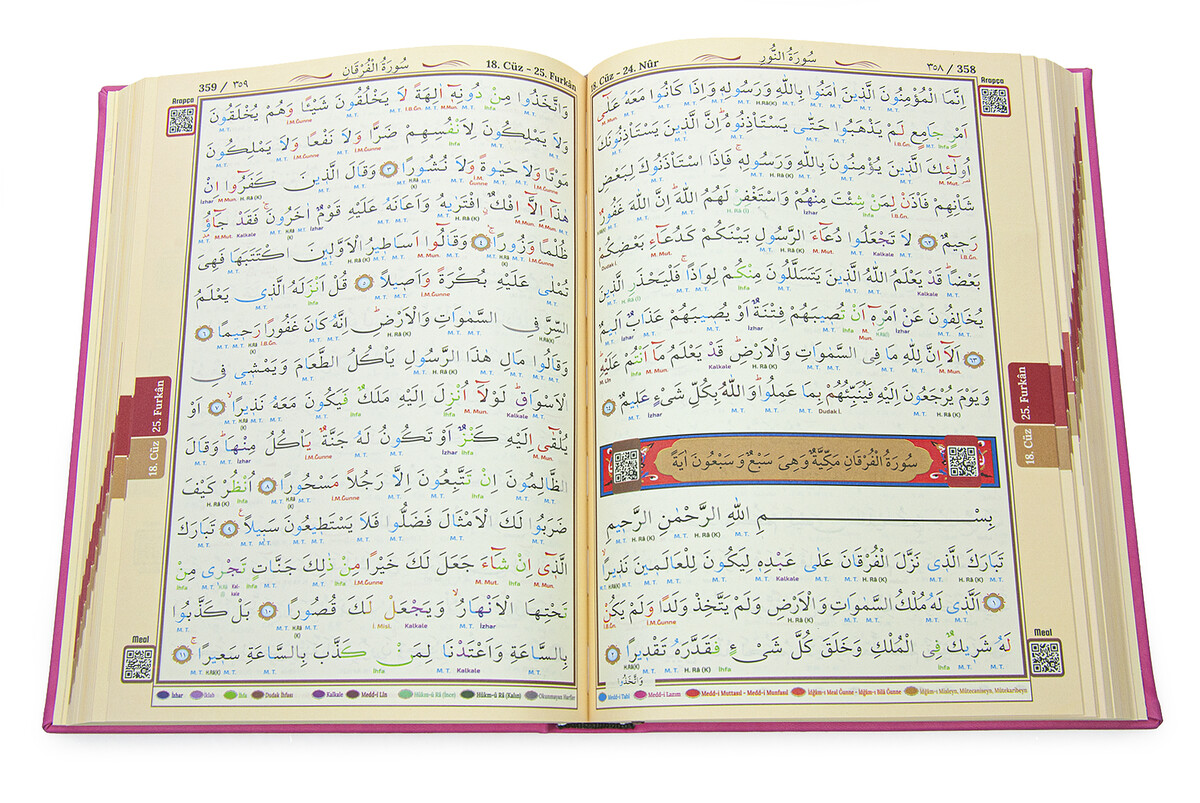 ٣٥٨ / 358
سُورَةُ النُّورِ
18. Cüz - 24. Nûr
Arapça
اِنَّمَا الْمُؤْمِنُونَ الَّذٖينَ اٰمَنُوا بِاللّٰهِ وَرَسُولِهٖ وَاِذَا كَانُوا مَعَهُ عَلٰٓى
اَمْرٍ جَامِعٍ لَمْ يَذْهَبُوا حَتّٰى يَسْتَأْذِنُوهُ اِنَّ الَّذٖينَ يَسْتَأْذِنُونَكَ
اُولٰٓئِكَ الَّذٖينَ يُؤْمِنُونَ بِاللّٰهِ وَرَسُولِهٖ فَاِذَا اسْتَأْذَنُوكَ لِبَعْضِ
شَأْنِهِمْ فَأْذَنْ لِمَنْ شِئْتَ مِنْهُمْ وَاسْتَغْفِرْ لَهُمُ اللّٰهَ اِنَّ اللّٰهَ غَفُورٌ
رَحٖيمٌ ٦٢ لَا تَجْعَلُوا دُعَٓاءَ الرَّسُولِ بَيْنَكُمْ كَدُعَٓاءِ بَعْضِكُمْ
بَعْضًا قَدْ يَعْلَمُ اللّٰهُ الَّذٖينَ يَتَسَلَّلُونَ مِنْكُمْ لِوَاذًا فَلْيَحْذَرِ الَّذٖينَ
يُخَالِفُونَ عَنْ اَمْرِهٖٓ اَنْ تُصٖيبَهُمْ فِتْنَةٌ اَوْ يُصٖيبَهُمْ عَذَابٌ اَلٖيمٌ
٦٣ اَلَٓا اِنَّ لِلّٰهِ مَا فِى السَّمٰوَاتِ وَالْاَرْضِ قَدْ يَعْلَمُ مَٓا اَنْتُمْ عَلَيْهِ
وَيَوْمَ يُرْجَعُونَ اِلَيْهِ فَيُنَبِّئُهُمْ بِمَا عَمِلُوا وَاللّٰهُ بِكُلِّ شَىْءٍ عَلٖيمٌ ٦٤
سُورَةُ الْفُرْقَانِ مَكِّيَّةٌ وَهِىَ سَبْعٌ وَ سَبْعُونَ اٰيَةً
بِسْمِ اللّٰهِ الرَّحْمٰنِ الرَّحٖيمِ
تَبَارَكَ الَّذٖى نَزَّلَ الْفُرْقَانَ عَلٰى عَبْدِهٖ لِيَكُونَ لِلْعَالَمٖينَ نَذٖيرًا
١ اَلَّذٖى لَهُ مُلْكُ السَّمٰوَاتِ وَالْاَرْضِ وَلَمْ يَتَّخِذْ وَلَدًا وَلَمْ يَكُنْ
لَهُ شَرٖيكٌ فِى الْمُلْكِ وَخَلَقَ كُلَّ شَىْءٍ فَقَدَّرَهُ تَقْدٖيرًا ٢
وَاتَّخَذُوا
Meal
Medd-i Tabî Medd-i Lazım Medd-i Muttasıl - Medd-i Munfasıl İdğâm-ı Meal Ğunne - İdğâm-ı Bilâ Ğunne İdğâm-ı Misleyn, Mütecaniseyn, Mütekaribeyn
25. Furkân
18. Cüz
359 / ٣٥٩
سُورَةُ الْفُرْقَانِ
18. Cüz - 25. Furkân
Arapça
وَاتَّخَذُوا مِنْ دُونِهٖٓ اٰلِهَةً لَا يَخْلُقُونَ شَيْـًٔا وَهُمْ يُخْلَقُونَ
وَلَا يَمْلِكُونَ لِاَنْفُسِهِمْ ضَرًّا وَلَا نَفْعًا وَلَا يَمْلِكُونَ
مَوْتًا وَلَا حَيٰوةً وَلَا نُشُورًا ٣ وَقَالَ الَّذٖينَ كَفَرُٓوا اِنْ
هٰذَٓا اِلَّٓا اِفْكٌ افْتَرٰيهُ وَاَعَانَهُ عَلَيْهِ قَوْمٌ اٰخَرُونَ فَقَدْ جَٓاؤُ
ظُلْمًا وَزُورًا ٤ وَقَالُٓوا اَسَاطٖيرُ الْاَوَّلٖينَ اكْتَتَبَهَا فَهِىَ
تُمْلٰى عَلَيْهِ بُكْرَةً وَاَصٖيلًا ٥ قُلْ اَنْزَلَهُ الَّذٖى يَعْلَمُ
السِّرَّ فِى السَّمٰوَاتِ وَالْاَرْضِ اِنَّهُ كَانَ غَفُورًا رَحٖيمًا ٦
وَقَالُوا مَالِ هٰذَا الرَّسُولِ يَأْكُلُ الطَّعَامَ وَيَمْشٖى فِى
الْاَسْوَاقِ لَوْلَٓا اُنْزِلَ اِلَيْهِ مَلَكٌ فَيَكُونَ مَعَهُ نَذٖيرًا ٧ اَوْ
يُلْقٰٓى اِلَيْهِ كَنْزٌ اَوْ تَكُونُ لَهُ جَنَّةٌ يَأْكُلُ مِنْهَا وَقَالَ
الظَّالِمُونَ اِنْ تَتَّبِعُونَ اِلَّا رَجُلًا مَسْحُورًا ٨ اُنْظُرْ كَيْفَ
ضَرَبُوا لَكَ الْاَمْثَالَ فَضَلُّوا فَلَا يَسْتَطٖيعُونَ سَبٖيلًا ٩ تَبَارَكَ
الَّذٖٓى اِنْ شَٓاءَ جَعَلَ لَكَ خَيْرًا مِنْ ذٰلِكَ جَنَّاتٍ تَجْرٖى مِنْ
تَحْتِهَا الْاَنْهَارُ وَيَجْعَلْ لَكَ قُصُورًا ١٠ بَلْ كَذَّبُوا
بِالسَّاعَةِ وَاَعْتَدْنَا لِمَنْ كَذَّبَ بِالسَّاعَةِ سَعٖيرًا ١١
Meal
İzhar İhfa Dudak İhfası Kalkale Medd-i Lîn Hükm-ü Râ (İnce) Hükm-ü Râ (Kalın) Okunmayan Harfler
25. Furkân
18. Cüz